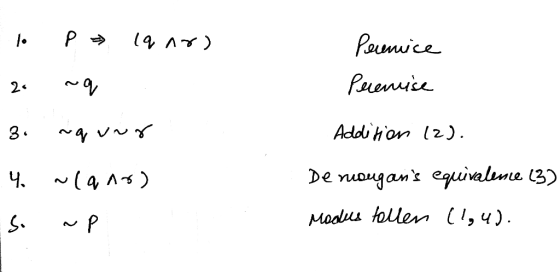 1. P ⇒ (q ∧ r) Premice
2. ~q Premise
3. ~q ∨ ~r Addition (2).
4. ~(q ∧ r) De morgan's equivalence (3)
5. ~P Modus tollen (1, 4).